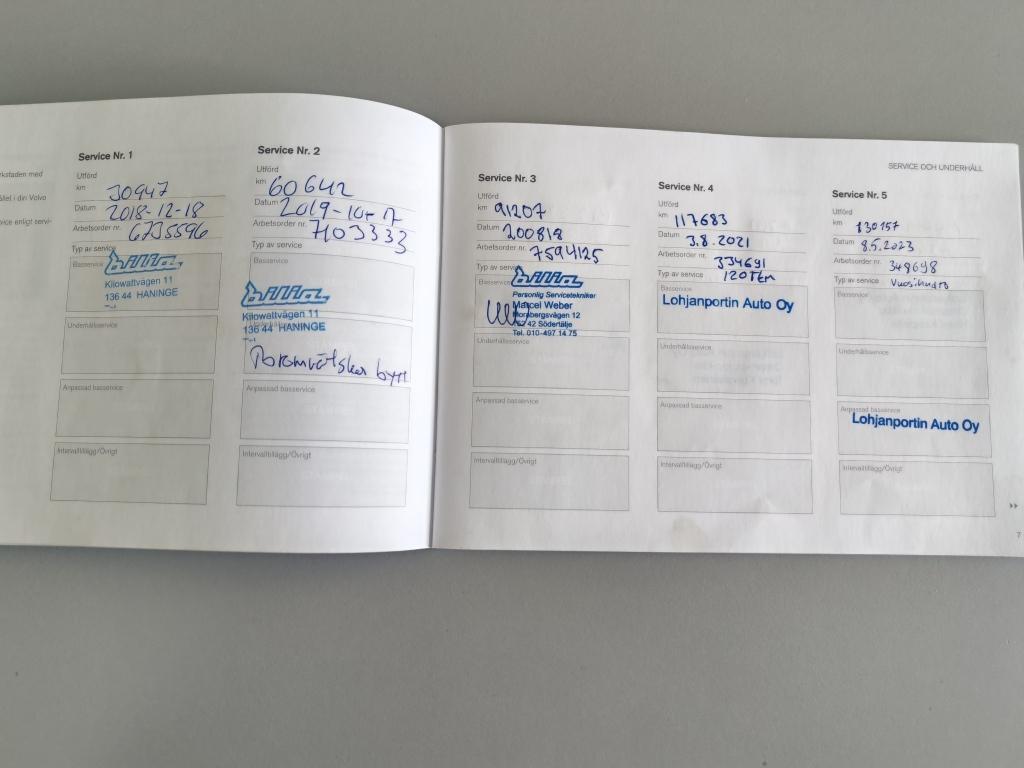 rkstaden med
ållet i din Volvo
vice enligt servi-
Service Nr. 1
Utförd
km 30947
Datum 2018-12-18
Arbetsorder nr. 6735596
Typ av service
Basservice
bilia
Kilowattvägen 11
136 44 HANINGE
Underhållsservice
Anpassad basservice
Intervalltillägg/Övrigt
Service Nr. 2
Utförd
km 60642
Datum 2019-10-17
Arbetsorder nr. 7103333
Typ av service
Basservice
bilia
Kilowattvägen 11
136 44 HANINGE
Bromvätska bytt
Anpassad basservice
Intervalltillägg/Övrigt
SERVICE OCH UNDERHÅLL
Service Nr. 3
Utförd
km 91207
Datum 200818
Arbetsorder nr. 7594125
Typ av service
Basservice
bilia
Personlig Servicetekniker
Marcel Weber
Morabergsvägen 12
152 42 Södertälje
Tel. 010-497 14 75
Underhållsservice
Anpassad basservice
Intervalltillägg/Övrigt
Service Nr. 4
Utförd
km 117683
Datum 3.8.2021
Arbetsorder nr. 334691
Typ av service 120Tkm
Basservice
Lohjanportin Auto Oy
Underhållsservice
Anpassad basservice
Intervalltillägg/Övrigt
Service Nr. 5
Utförd
km 130157
Datum 8.5.2023
Arbetsorder nr. 349698
Typ av service Vuosihuolto
Basservice
Underhållsservice
Anpassad basservice
Lohjanportin Auto Oy
Intervalltillägg/Övrigt
7